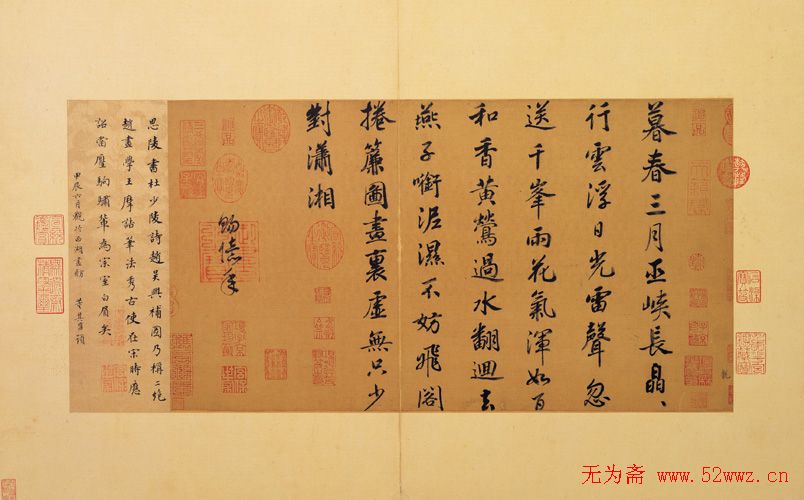 暮春三月巫峽長晶〻
行雲浮日光雷聲忽
送千峯雨花氣渾如百
和香黃鶯過水翻迴去
燕子啣泥濕不妨飛閣
捲簾圖畫裏虛無只少
對瀟湘
賜億年
思陵書杜少陵詩趙吳興補圖乃稱二絶
趙畫學王摩詰筆法考古使在宋時應
詔當壓駒驌輩為宗室白眉矣
甲辰六月觀於西湖畫舫 董其昌題
无为斋 www.52wwz.cn